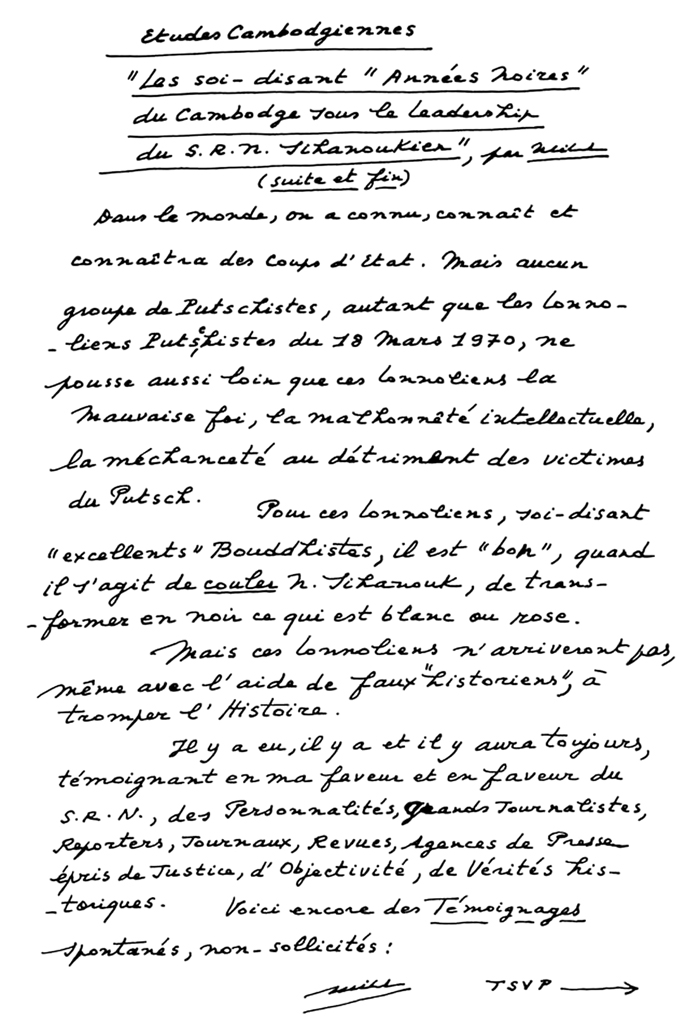 Etudes Cambodgiennes
"Les soi-disant "Années Noires"
du Cambodge sous le leadership
du S.R.N. Sihanoukien", par
(suite et fin)
Dans le monde, on a connu, connaît et
connaîtra des coups d'Etat. Mais aucun
groupe de Putschistes, autant que les lonno-
-liens Putschistes du 18 Mars 1970, ne
pousse aussi loin que ces lonnoliens la
mauvaise foi, la malhonnêté intellectuelle,
la méchanceté au détriment des victimes
du Putsch.
Pour ces lonnoliens, soi-disant
"excellents" Bouddhistes, il est "bon", quand
il s'agit de couler N. Sihanouk, de trans-
-former en noir ce qui est blanc ou rose.
Mais ces lonnoliens n'arriveront pas,
même avec l'aide de faux "historiens", à
tromper l'Histoire.
Il y a eu, il y a et il y aura toujours,
témoignant en ma faveur et en faveur du
S.R.N., des Personnalités, Grands Journalistes,
Reporters, Journaux, Revues, Agences de Presse
épris de Justice, d'Objectivité, de Vérités his-
-toriques.
Voici encore des Témoignages
spontanés, non-sollicités :
TSVP →